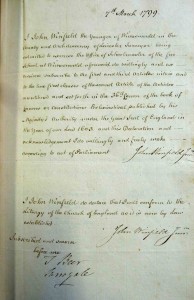 7th March 1799
I John Winfield the Younger of Wirksworth in the
County and Archdeaconry of Derby Surveyor being
admitted to exercise the Office of Schoolmaster of the free
school at Wirksworth aforesaid do willingly and ex
animo subscribe to the first and third Articles and
to the two first clauses of the second Article of the Canon
and set forth in the 36th Canon of the book of
Canons or Constitutions Ecclesiastical published by his
Majesty's Authority under the Great Seal of England in
the year of our Lord 1603. and this Declaration and
acknowledgement I do willingly and freely make
according to act of Parliament
John Winfield Junr
I John Winfield do declare that I will conform to the
Liturgy of the Church of England as it is now by Law
established
John Winfield Junr
Subscribed and sworn
before me
Surrogate